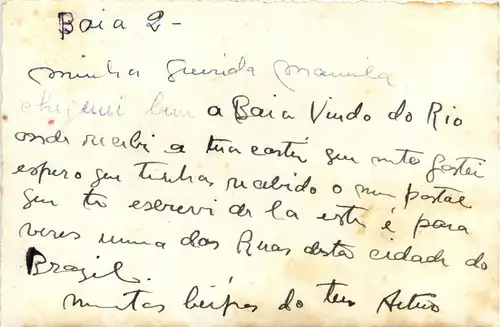 Baia 2-
minha querida Mamita
cheguei bem a Baia Vindo do Rio
onde recebi a tua carta que muito gostei
espero que tenhas recebido o meu postal
que te escrevi de la este é para
veres numa das Ruas desta cidade do
Brazil.
muitos beijos do teu Artur